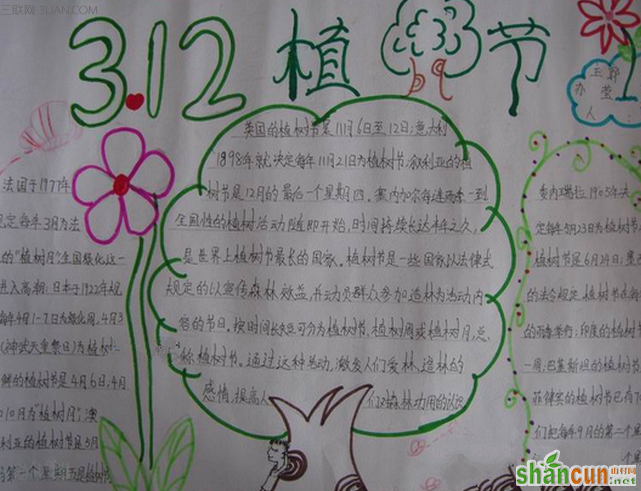 三联网 3LIAN.COM
3.12植树节
办
人:
王郭
莹
法国于1977年
规定每年3月为法
的"植树月"全国绿化这一
进入高潮;日本于1922年规
每年4月1-7日为绿化周,4月3
(神武天皇祭日)为植树
鲜的植树节是4月6日,4月
10月为"植树月";澳
利亚的植树节是5月
第一个星期五是植树节
英国的植树节是11月6日至12日;意大利
1898年就决定每年11月21日为植树节;叙利亚的植
树节是12月的最后一个星期四。塞内加尔每逢雨季一到
全国性的植树活动随即开始,时间持续长达半年之久,
是世界上植树节最长的国家。植树节是一些国家以法律式
规定的以宣传森林效益,并动员群众参加造林为活动内
容的节日。按时间长短可分为植树节,植树周或植树月,总
称植树节。通过这种活动,激发人们爱林、造林的
感情,提高人们对森林功用的认识
委内瑞拉1905年
定每年5月23日为植树
植树节是6月24日;墨
的法令规定,植树节在
的雨季举行;印度的植树节
一周,巴基斯坦的植树节
菲律宾的植树节已有
们把每年9月的第二个星
shancun
山村网
.net